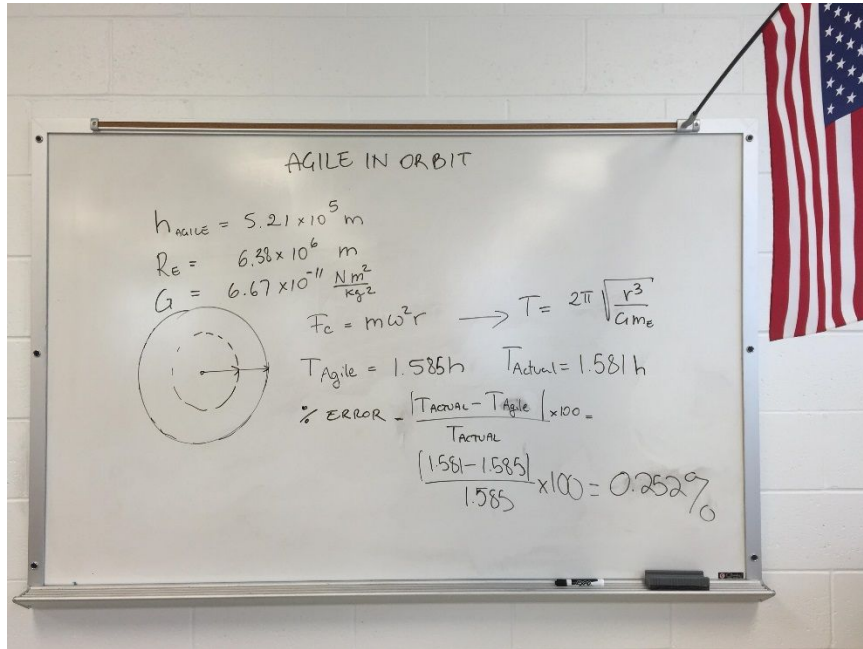 AGILE IN ORBIT
h_AGILE = 5.21 × 10⁵ m
R_E = 6.38 × 10⁶ m
G = 6.67 × 10⁻¹¹ Nm²/kg²
F_c = mω²r → T = 2π √(r³/Gm_E)
T_Agile = 1.585h T_Actual = 1.581h
% ERROR = |T_ACTUAL − T_Agile|/T_ACTUAL × 100 =
|1.581 − 1.585|/1.585 × 100 = 0.252%